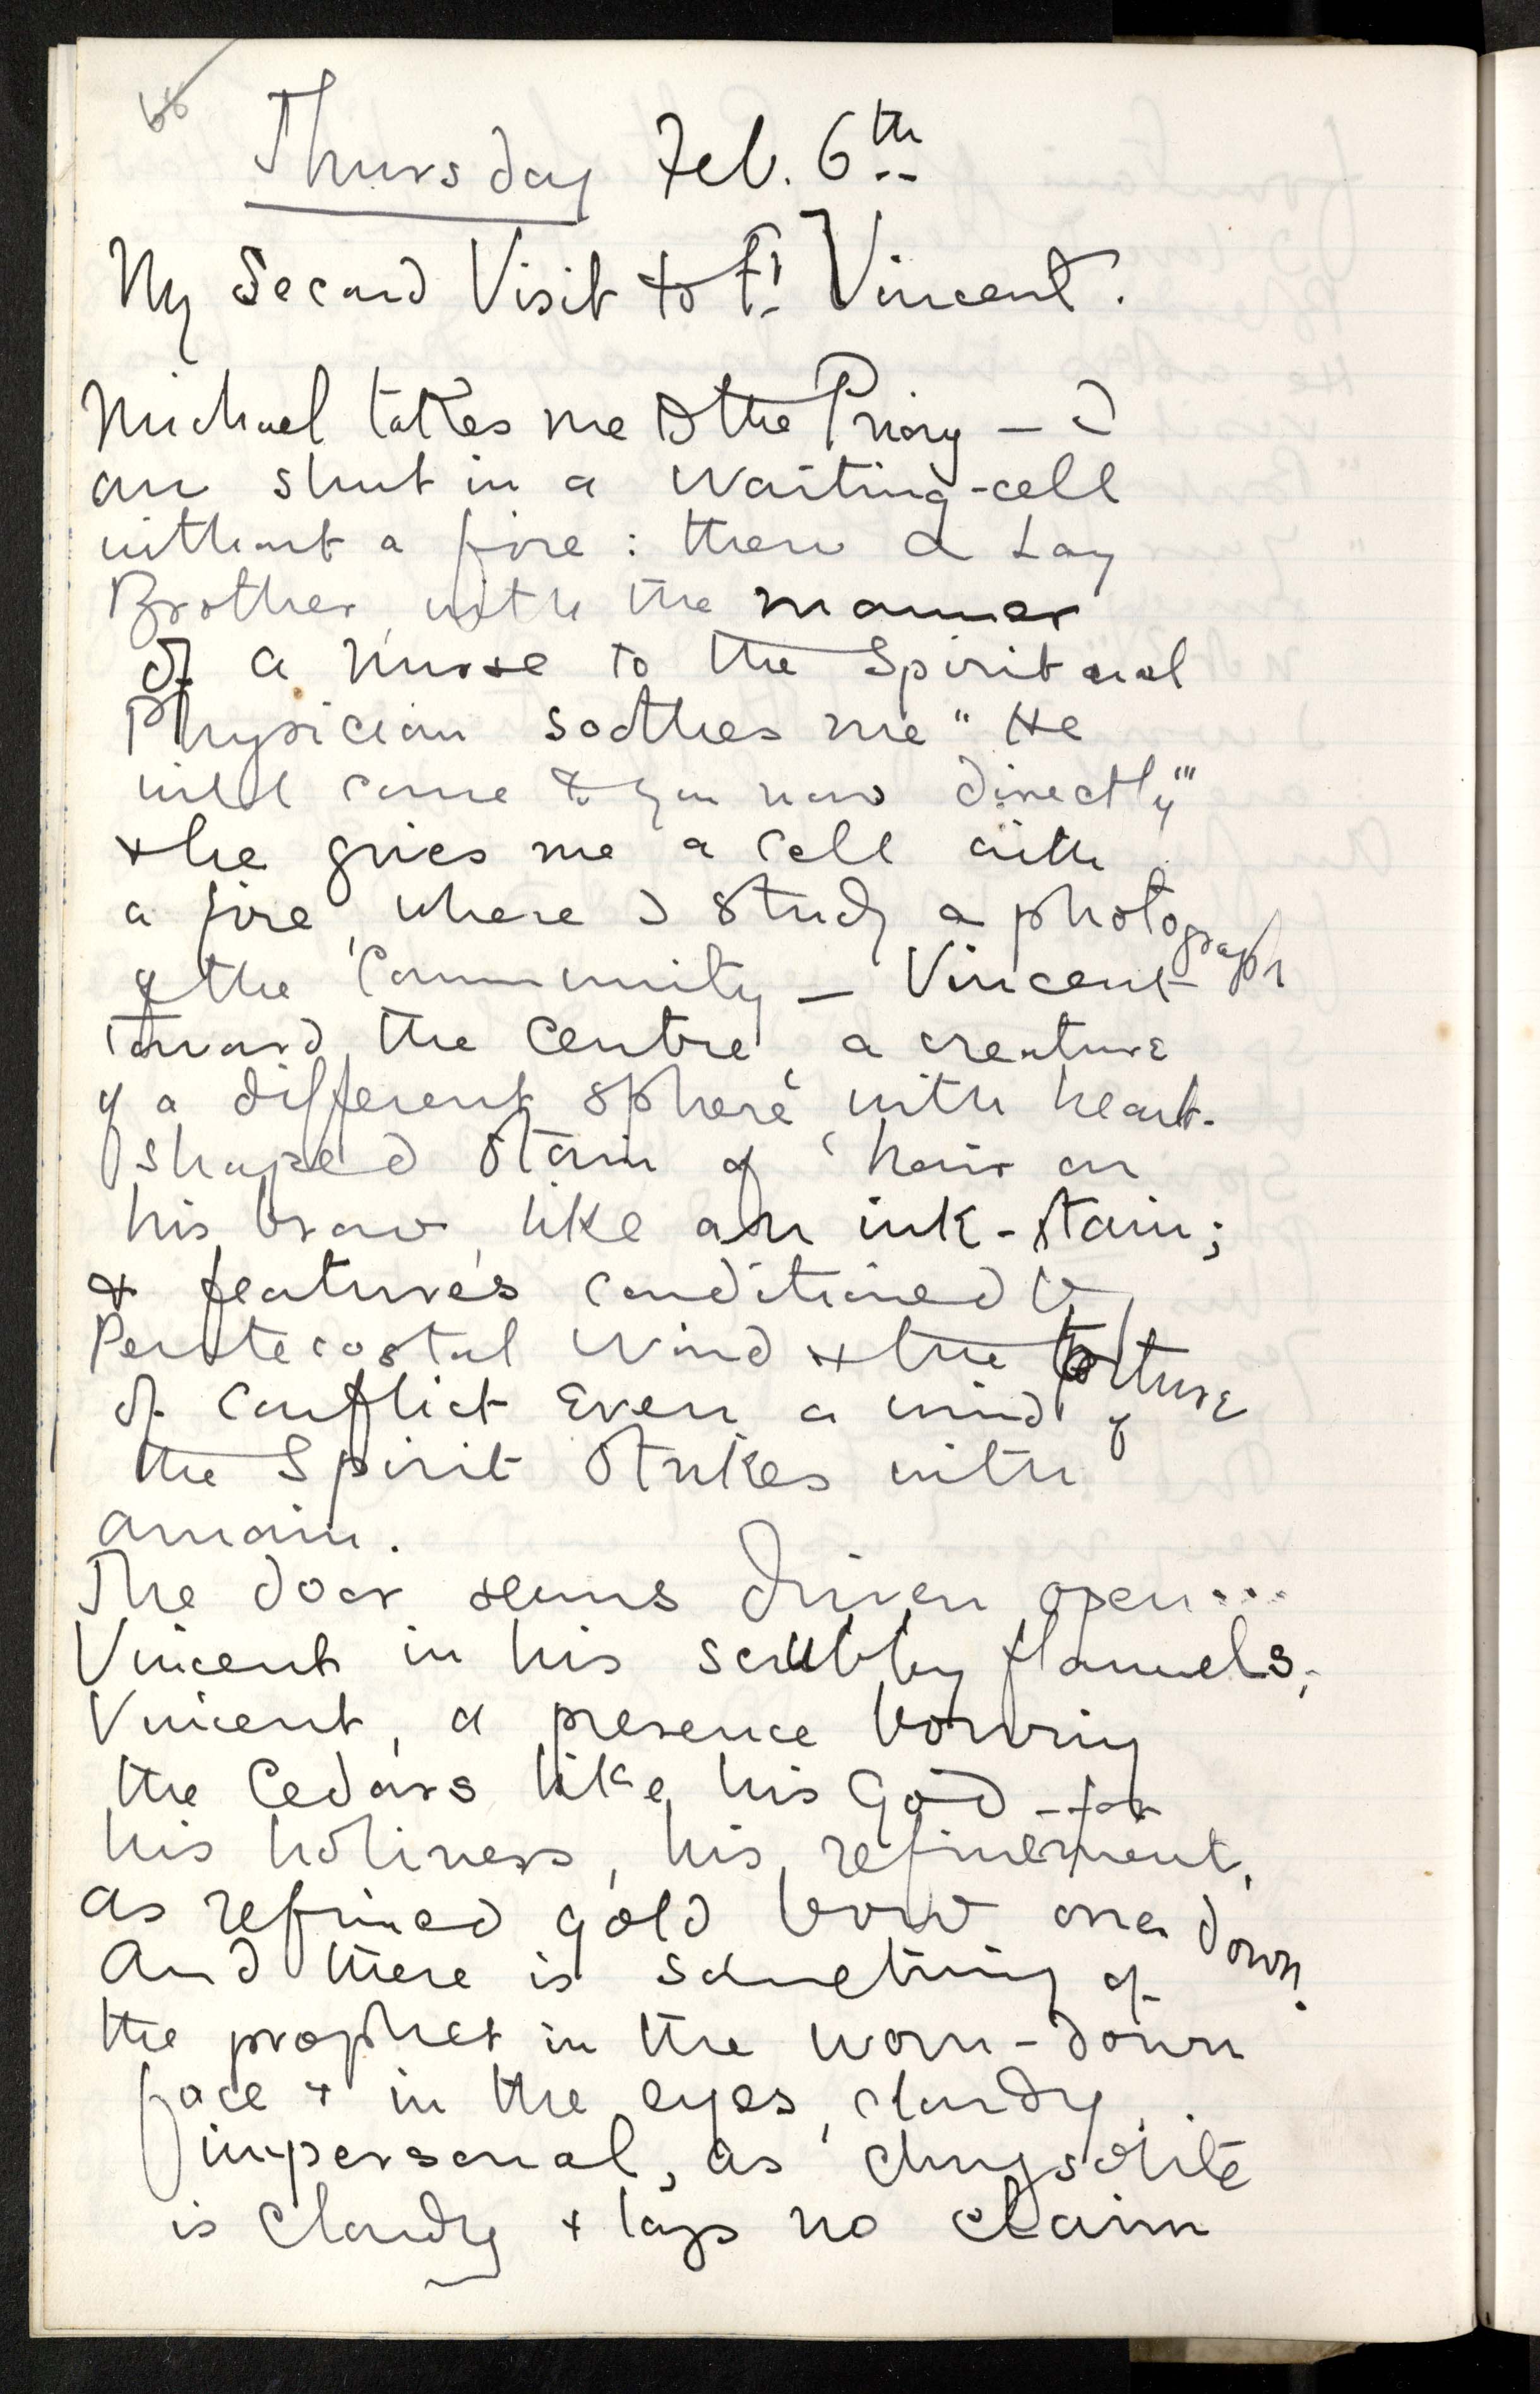 Thursday Feb. 6th
My Second Visit to Fr Vincent.
Michael takes me to the Priory — I
am shut in a waiting-cell
without a fire : then a Lay
Brother, with the manner
of a nurse to the Spiritual
Physician soothes me "He
will come to you now directly"
& he gives me a cell with
a fire, where I study a photograph
of the Community — Vincent
toward the centre, a creature
of a different sphere, with heart-
shaped stain of hair on
his brow, like an ink-stain;
& features conditioned by
Pentecostal wind & the torture
of conflict even a wind of
the Spirit strikes with
amain.
The door seems driven open...
Vincent in his scrubby flannels;
Vincent, a presence bowing
the Cedars like his God - for
his holiness, his refinement,
as refined gold bow one down.
And there is something of
the prophet in the worn-down
face & in the eyes, cloudy,
impersonal, as chrysolite
is cloudy & lays no claim